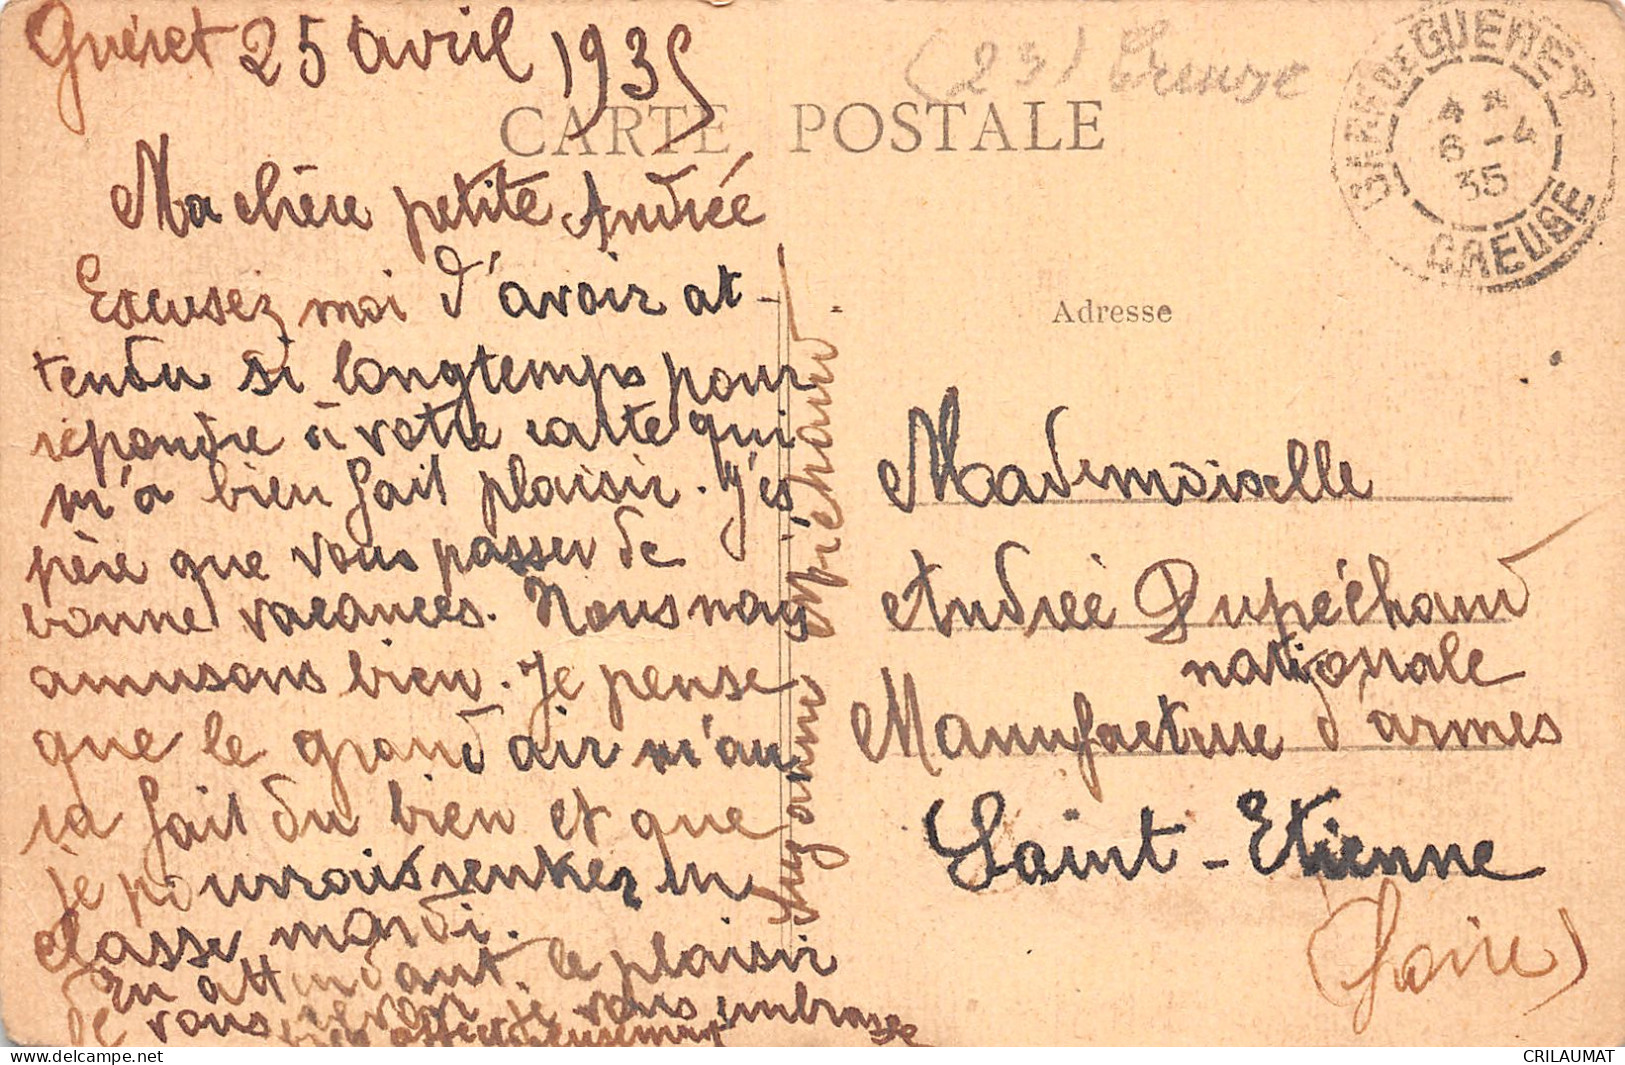 Guéret 25 avril 1935
(23) Creuse
CARTE POSTALE
GARE DE GUERET
4 *
6 - 4
35
CREUSE
Ma chère petite Andrée
Excusez moi d'avoir at-
tendu si longtemps pour
répondre à votre carte qui
m'a bien fait plaisir. J'es
père que vous passer de
bonne vacances. Nous nous
amusons bien. Je pense
que le grand air m'au
ra fait du bien et que
je pourrais rentrer en
classe mardi.
En attendant le plaisir
de vous revoir je vous embrasse
bien affectueusement
Suzanne Dupiéchaud
Adresse
Mademoiselle
Andrée Dupéchaud
nationale
Manufacture d'armes
Saint-Etienne
(Loire)
CRILAUMAT